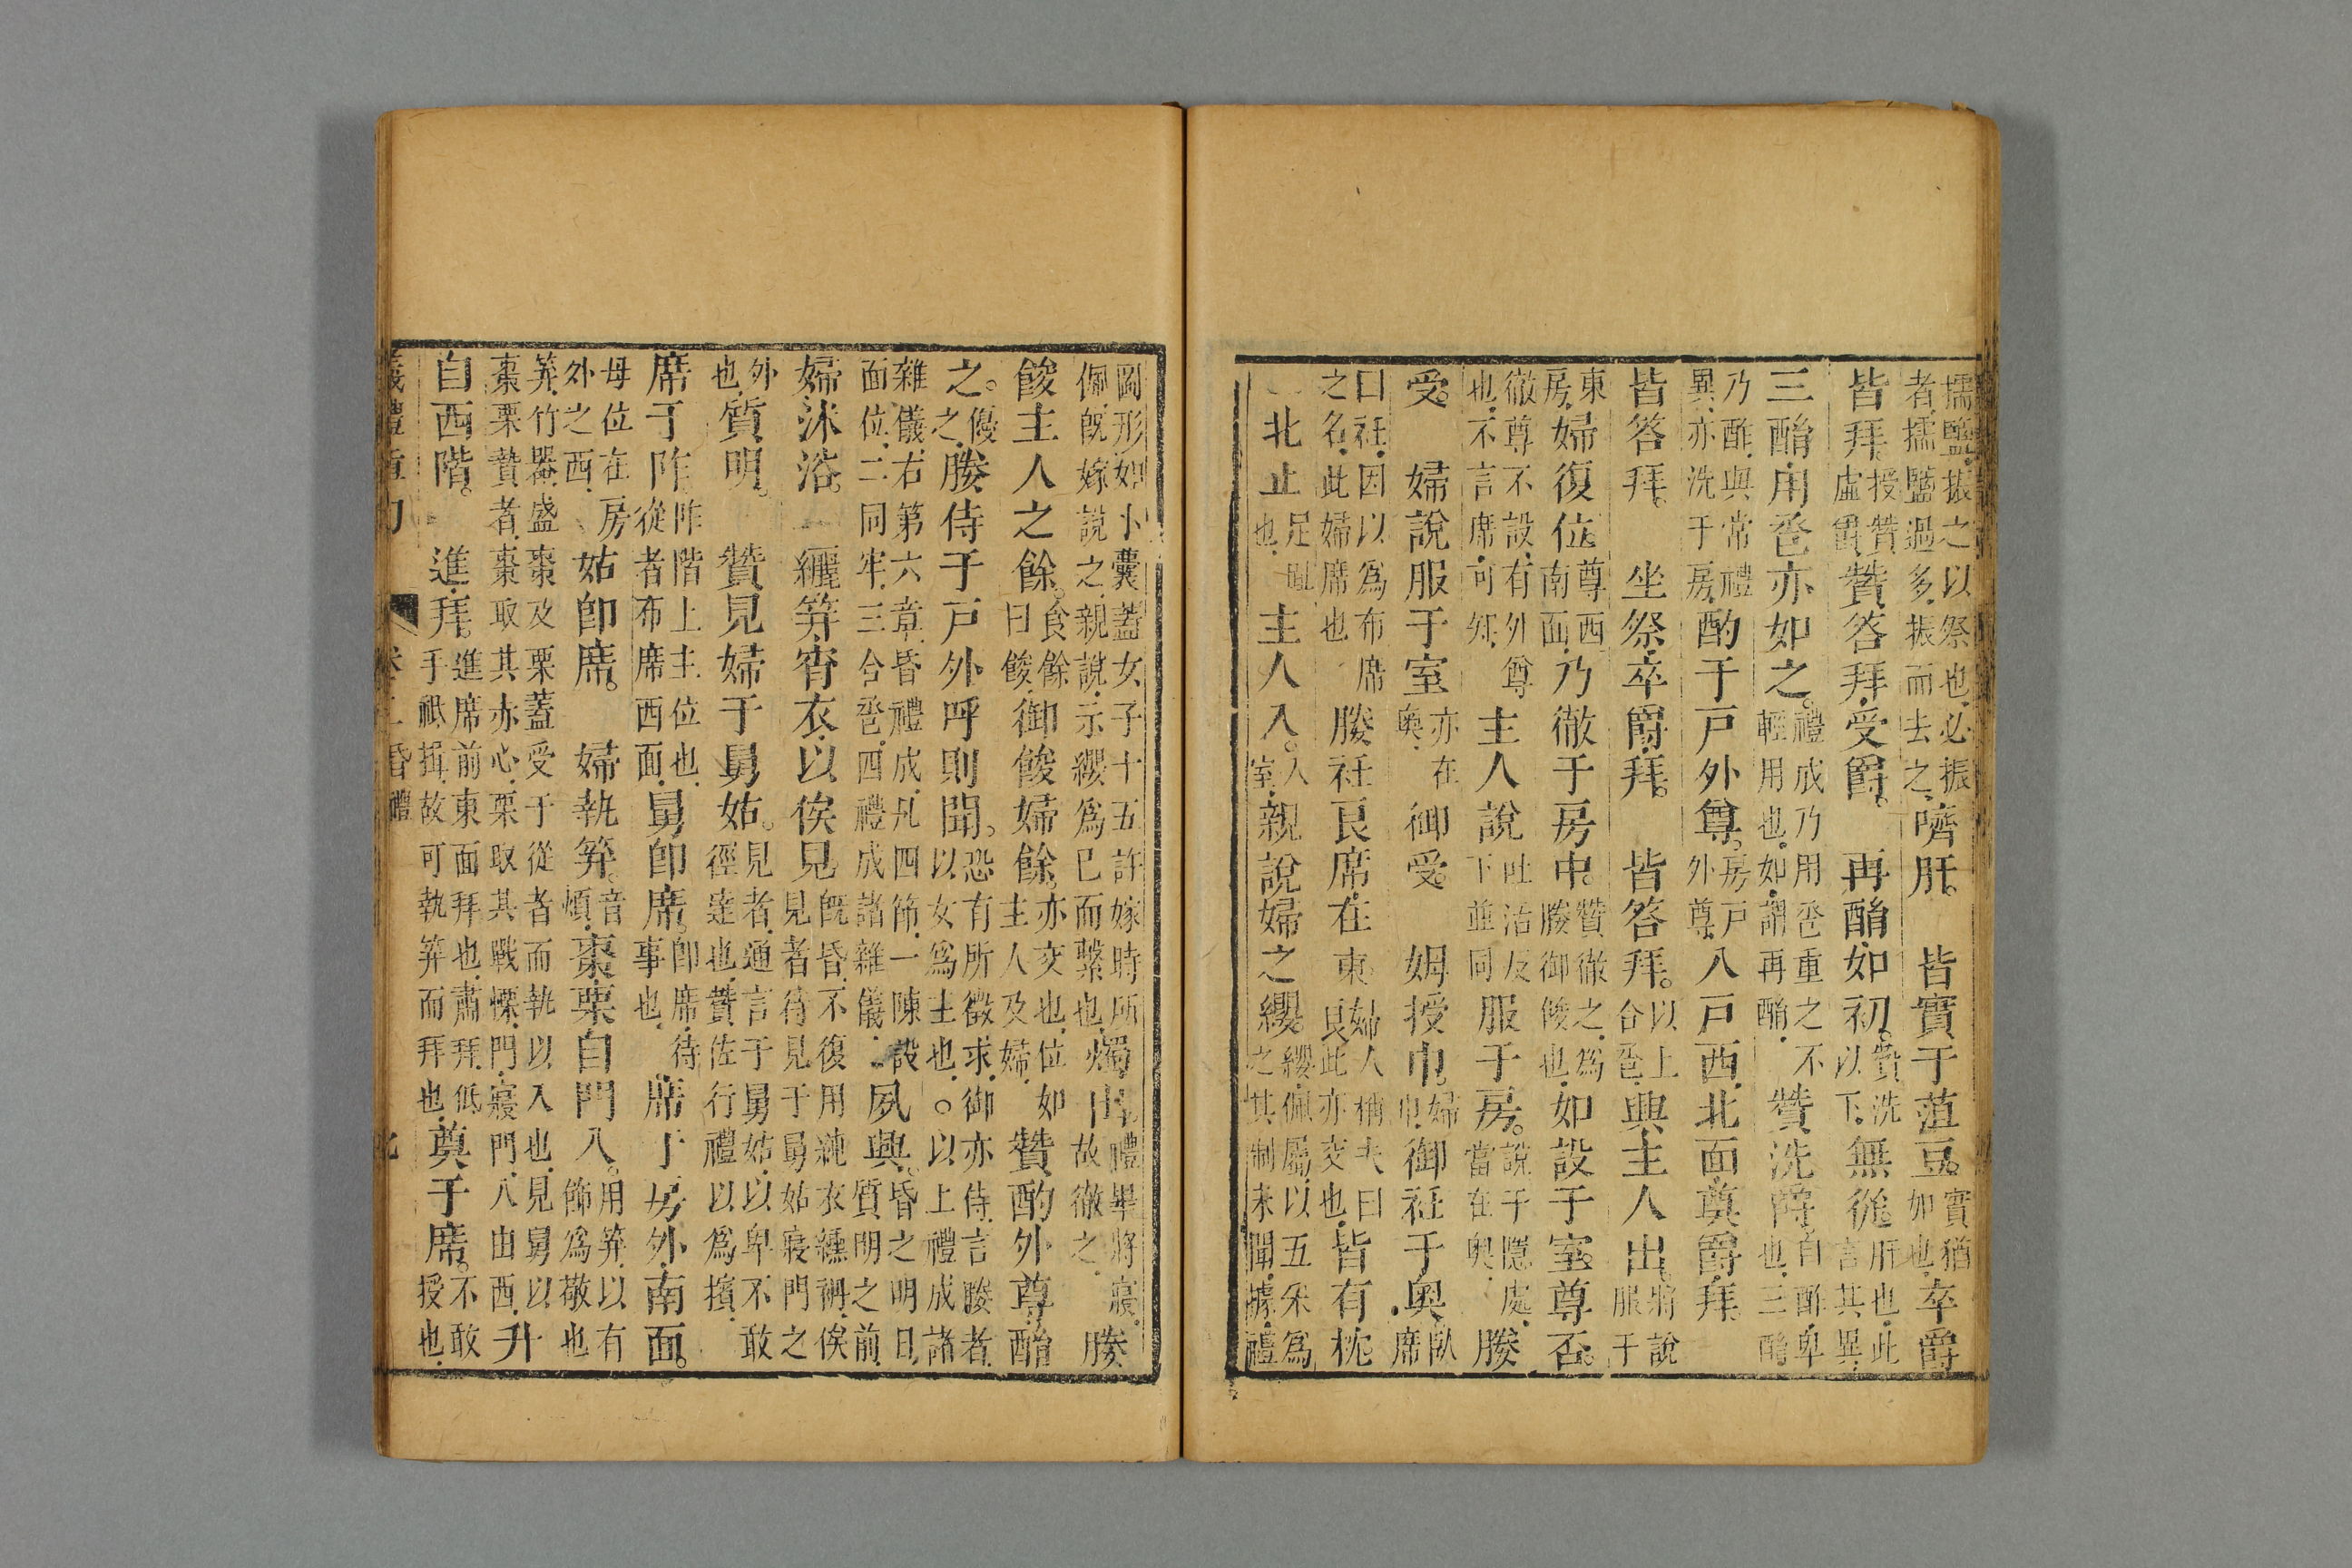 擩鹽振之以祭也必振者擩鹽過多振而去之嚌肝。　皆實于菹豆。實猶如也卒爵
皆拜。授贊虛爵贊答拜受爵。　再酳如初。贊洗以下無從。肝也此言其異
三酳用卺亦如之。禮成乃用卺重之不輕用也如謂再酳　贊洗爵自酢卑也三酳
乃酢與常禮異亦洗于房酌于戶外尊。房戶外尊入戶西北面奠爵拜
皆答拜。　坐祭卒爵拜。　皆答拜。以上合卺興主人出。將說服于
東房婦復位尊西南面乃徹于房中。贊徹之爲媵御餕也如設于室尊否。
徹尊不設有外尊也不言席可知主人說吐活反下並同服于房。說于隱處當在奧媵
受。　婦說服于室亦在奧　御受。　姆授巾。婦巾御衽于奧臥席
曰衽因以爲布席之名此婦席也　媵衽良席在東婦人稱夫曰良此亦交也皆有枕
北止足趾也　主人入。入室親說婦之纓。纓佩屬以五采爲之其制未聞據禮
圖形如小囊蓋女子十五許嫁時所佩旣嫁說之親說示纓爲已而繫也燭出禮畢將寢故徹之　媵
餕主人之餘。食餘曰餕御餕婦餘。亦交也位如主人及婦　贊酌外尊酳
之。優之媵侍于戶外呼則聞。恐有所徵求御亦侍言媵者以女爲主也。以上禮成諸
雜儀右第六章昏禮成凡四節一陳設面位二同牢三合卺四禮成諸雜儀　夙興。昏之明日質明之前
婦沐浴。　纚笄宵衣以俟見旣昏不復用純衣纁袡俟見者待見于舅姑寢門之
外也質明。　贊見婦于舅姑。見者通言于舅姑以卑不敢徑達也贊佐行禮以爲擯
席于阼阼階上主位也從者布席西面舅卽席。卽席待事也　席于房外南面。
母位在房外之西　姑卽席。　婦執笲。音煩棗栗自門入。用笲以有飾爲敬也
笲竹器盛棗及栗蓋受于從者而執以入也見舅以棗栗贄者棗取其亦心栗取其戰慄門寢門入由西升
自西階。　進拜。進席前東面拜也肅拜低手祗揖故可執笲而拜也奠于席。不敢授也